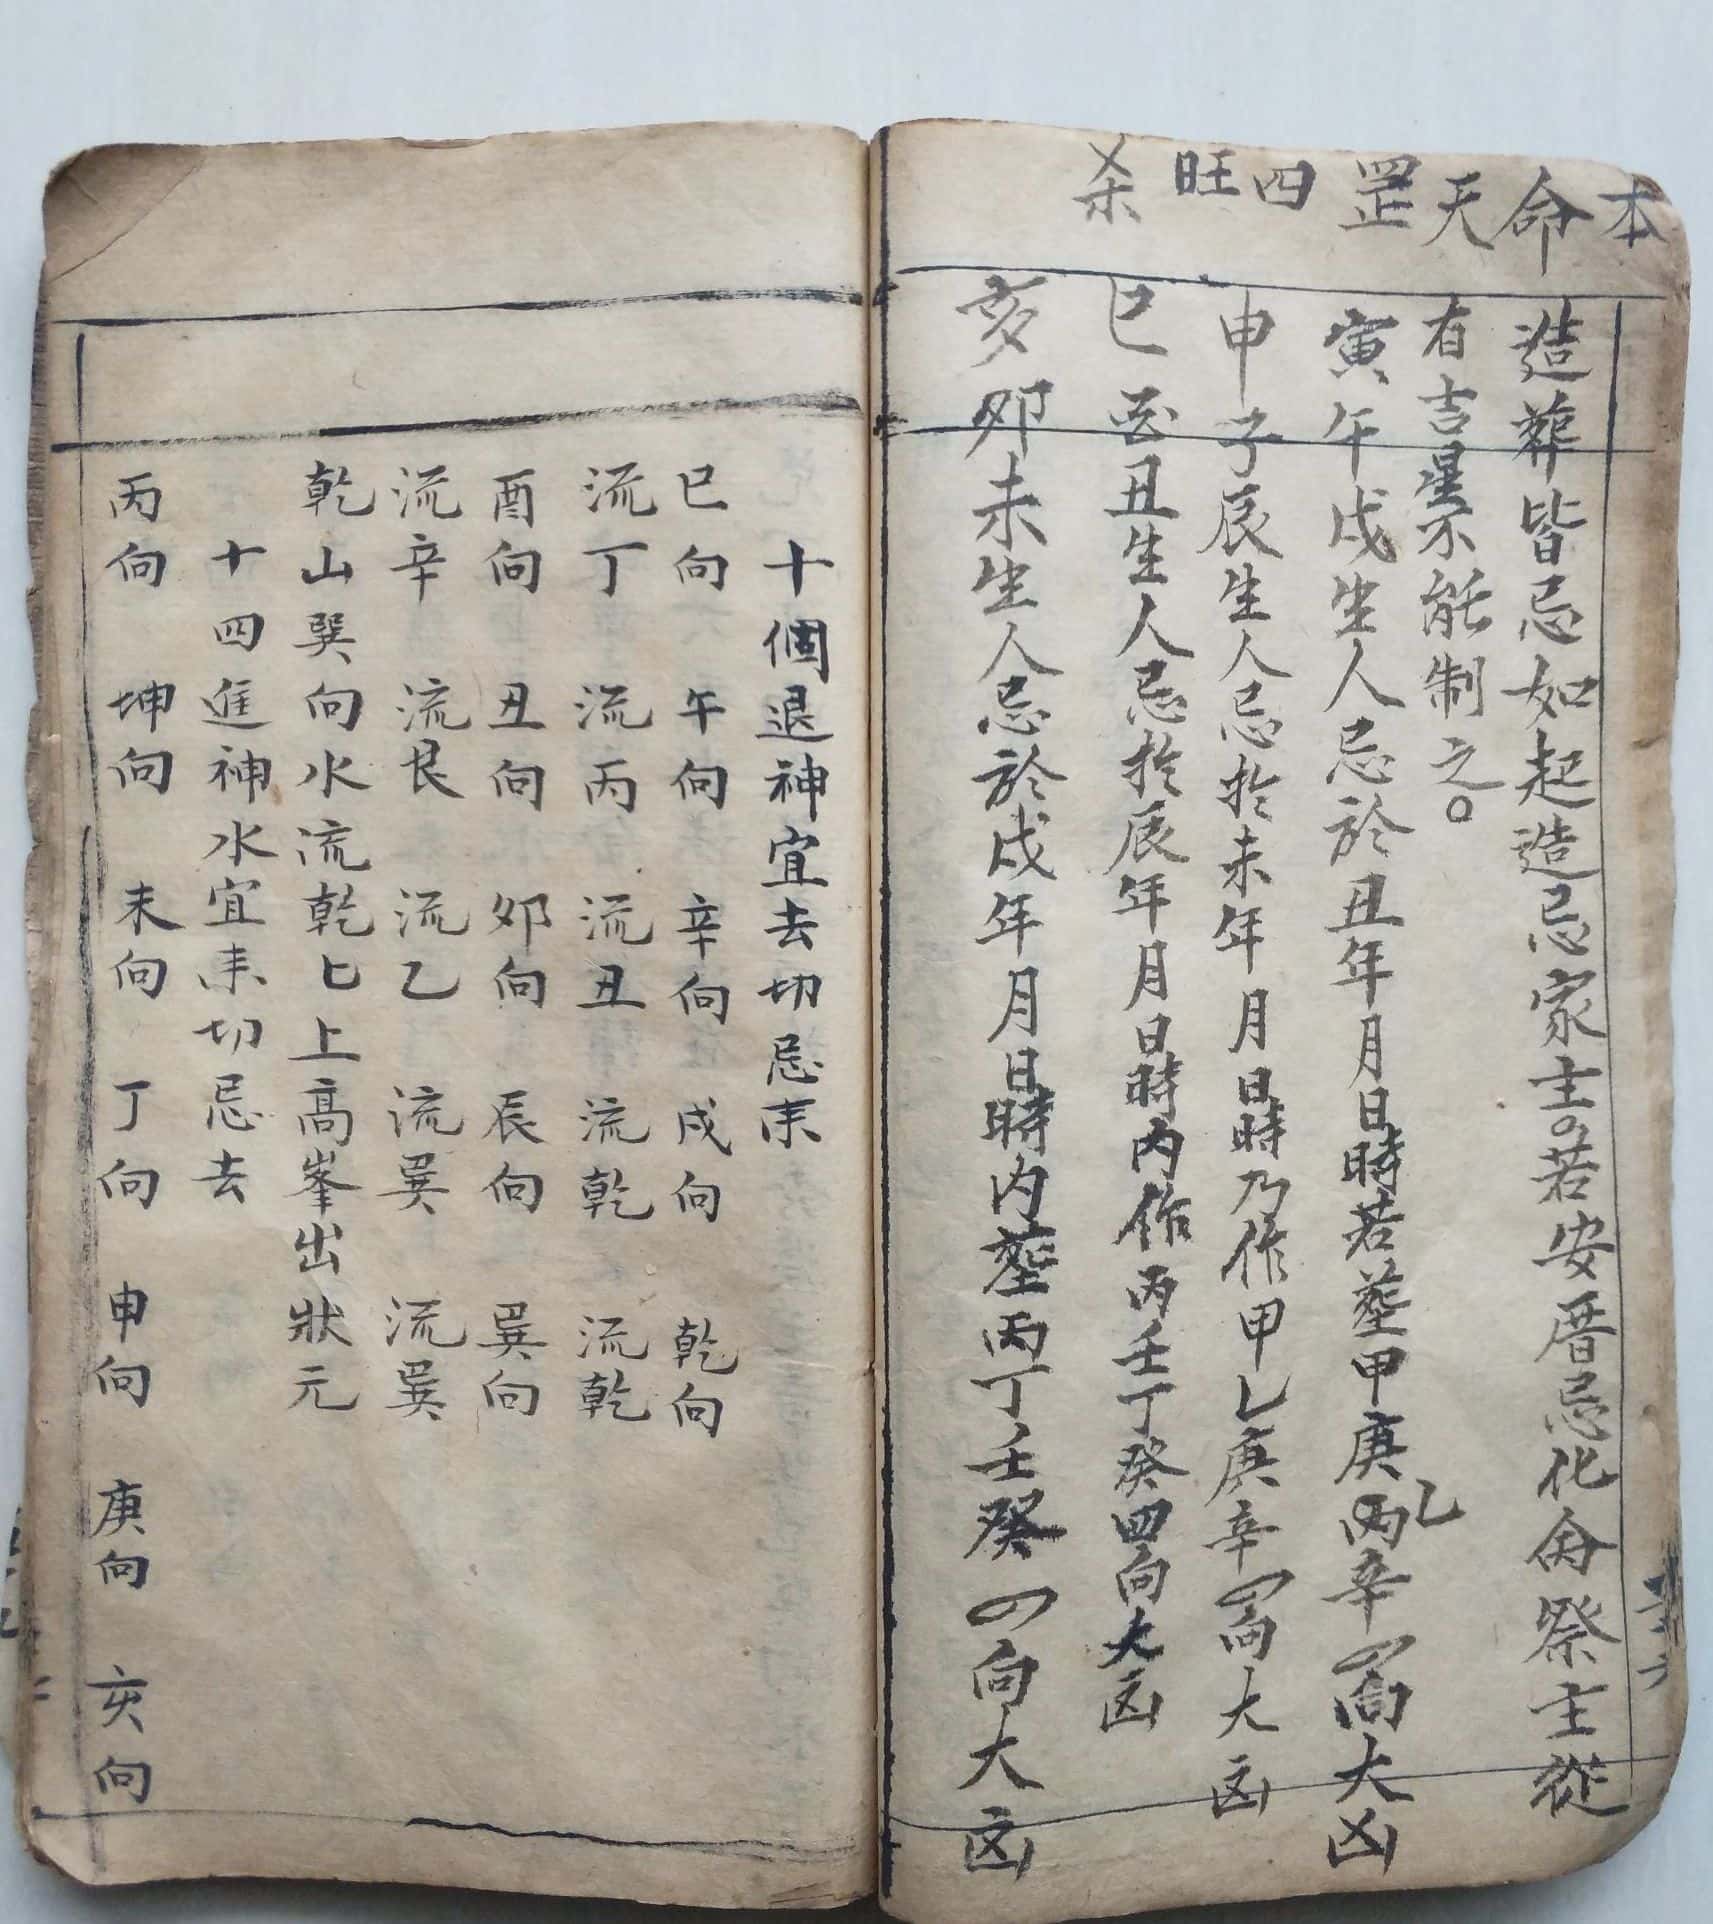 本命天罡四旺杀
造葬皆忌如起造忌家主。若安厝忌化命祭主從
有吉星不能制之。
寅午戌生人忌於丑年月日時若葬甲庚乙丙辛四向大凶
申子辰生人忌於未年月日時乃作甲乙庚辛四向大凶
巳酉丑生人忌於辰年月日時内作丙壬丁癸四向大凶
亥卯未生人忌於戌年月日時内葬丙丁壬癸四向大凶
十個退神宜去切忌来
巳向 午向 辛向 戌向 乾向
流丁 流丙 流丑 流乾 流乾
酉向 丑向 卯向 辰向 巽向
流辛 流艮 流乙 流巽 流巽
乾山巽向水流乾匕上高峯出狀元
十四進神水宜来切忌去
丙向 坤向 未向 丁向 申向 庚向 亥向